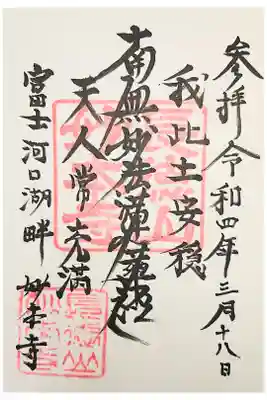 参拝令和四年三月十八日
我此土安穏
南無妙法蓮華経
天人常充満
富士河口湖畔 妙本寺